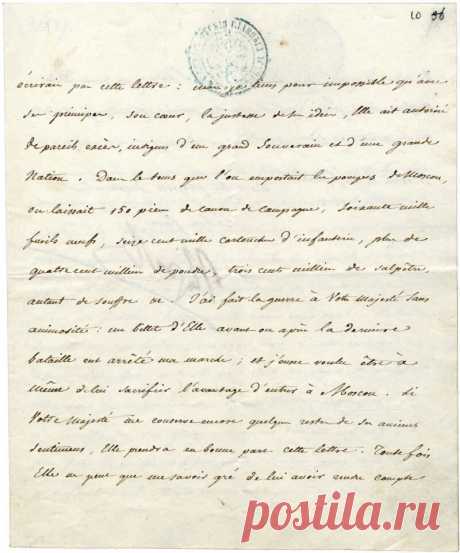 10 96
écrirais pas cette lettre : mais je tiens pour impossible qu'avec
ses principes, son cœur, la justesse de ses idées, Elle ait autorisé
de pareils excès, indignes d'un grand Souverain et d'une grande
Nation. Dans le tems que l'on emportait les pompes de Moscou,
on laissait 150 pièces de canon de campagne, soixante mille
fusils neufs, seize cent mille cartouches d'infanterie, plus de
quatre cent milliers de poudre, trois cent milliers de salpêtre,
autant de souffre &c. J'ai fait la guerre à Votre Majesté sans
animosité : un billet d'Elle avant ou après la dernière
bataille eut arrêté ma marche ; et j'eusse voulu être à
même de lui sacrifier l'avantage d'entrer à Moscou. Si
Votre Majesté me conserve encore quelques restes de ses anciens
sentimens, Elle prendra en bonne part cette lettre. Toutefois
Elle ne peut que me savoir gré de lui avoir rendu compte
Postila.ru